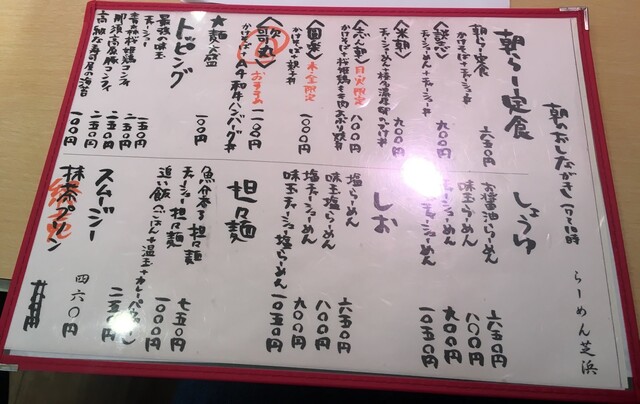 朝のおしながき(7〜10時
らーめん芝浜
朝らー定食
朝らー定食
かけそば+チャーシュー丼
六五〇円
〈談志〉
チャーシューめん+チャーシュー丼
九〇〇円
〈米朝〉
九〇〇円
〈志ん朝〉月火限定
八〇〇円
〈圓楽〉木・金限定
かけそば+親子丼
一〇〇〇円
〈歌丸〉おすすめ
かけそば+A4和牛ハンバーグ丼
一一〇〇円
★麺大盛
一〇〇円
トッピング
最強の味玉
一五〇円
チャーシュー
二五〇円
青森桜姫鶏コンフィ
二五〇円
那須高原豚コンフィ
二五〇円
高級な寿司屋の海苔
一〇〇円
しょうゆ
お醤油らーめん
六五〇円
味玉らーめん
八〇〇円
チャーシューめん
九〇〇円
味玉チャーシューめん
一〇五〇円
しお
塩らーめん
六五〇円
味玉塩らーめん
八〇〇円
塩チャーシューめん
九〇〇円
味玉チャーシュー塩らーめん
一〇五〇円
担々麺
魚介香る担々麺
七五〇円
チャーシュー担々麺
一〇〇〇円
追い飯(ごはん+温玉+カレーパウダー)
二五〇円
スムージー
四六〇円
抹茶プリン